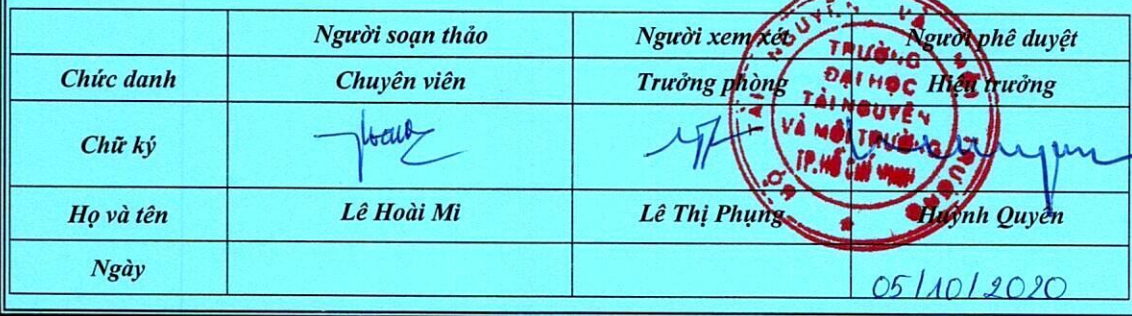 Người soạn thảo Người xem xét Người phê duyệt
Chức danh Chuyên viên Trưởng phòng Hiệu trưởng
Chữ ký
Họ và tên Lê Hoài Mi Lê Thị Phụng Huỳnh Quyền
Ngày 05/10/2020
BỘ TÀI NGUYÊN VÀ MÔI TRƯỜNG
TRƯỜNG
ĐẠI HỌC
TÀI NGUYÊN
VÀ MÔI TRƯỜNG
TP.HỒ CHÍ MINH